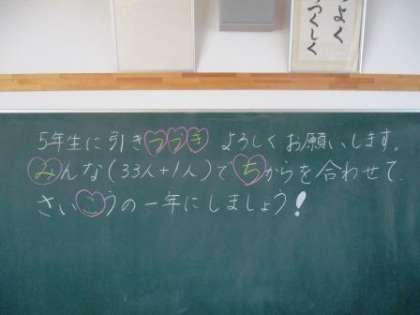 つよく
つくしく
5年生に引きつづき よろしくお願いします。
みんな(33人+1人)で ちからを合わせて、
さいこうの一年にしましょう!